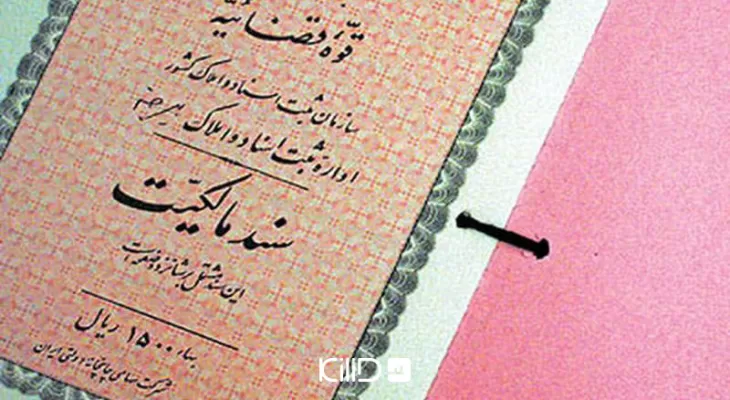 قوّهٔ قضائیّه
سازمان ثبت اسناد و املاک کشور
اداره ثبت اسناد و املاک
سند مالکیّت
این سند مشتمل بر شانزده صفحه است
بهاء ۱۵۰۰ ریال
شرکت سهامی چاپخانه دولتی ایران
KiLiD